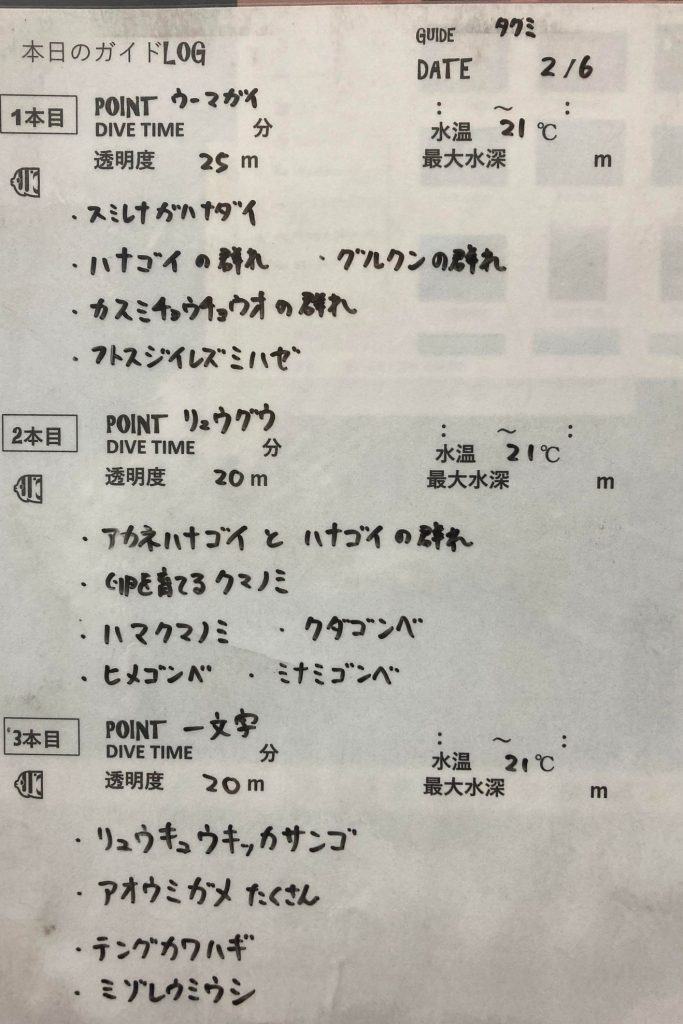 本日のガイドLOG
GUIDE タクミ
DATE 2/6
1本目 POINT ウーマガイ : ～ :
DIVE TIME 分 水温 21℃
透明度 25 m 最大水深 m
・スミレナガハナダイ
・ハナゴイの群れ ・グルクンの群れ
・カスミチョウチョウオの群れ
・フトスジイレズミハゼ
2本目 POINT リュウグウ : ～ :
DIVE TIME 分 水温 21℃
透明度 20 m 最大水深 m
・アカネハナゴイと ハナゴイの群れ
・卵を育てるクマノミ
・ハマクマノミ ・クダゴンベ
・ヒメゴンベ ・ミナミゴンベ
3本目 POINT 一文字 : ～ :
DIVE TIME 分 水温 21℃
透明度 20 m 最大水深 m
・リュウキュウキッカサンゴ
・アオウミガメ たくさん
・テングカワハギ
・ミゾレウミウシ